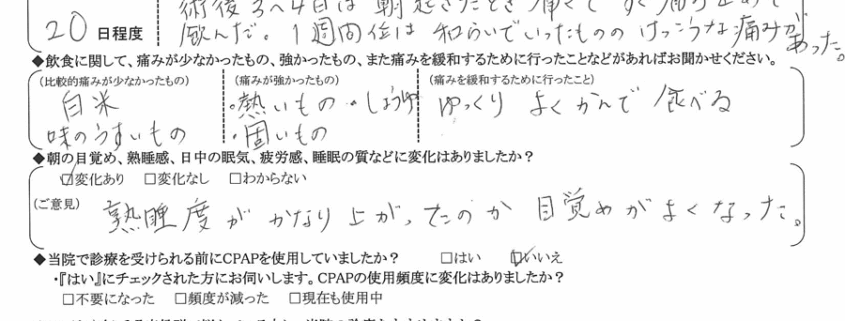 術後3〜4日は朝起きたとき痛くてすぐ痛み止めを
20日程度 飲んだ。1週間位は和らいでいったもののけっこうな痛みがあった。
◆飲食に関して、痛みが少なかったもの、強かったもの、また痛みを緩和するために行ったことなどがあればお聞かせください。
(比較的痛みが少なかったもの) (痛みが強かったもの) (痛みを緩和するために行ったこと)
白米 ・熱いもの ・しょうゆ ゆっくりよくかんで食べる
味のうすいもの ・固いもの
◆朝の目覚め、熟睡感、日中の眠気、疲労感、睡眠の質などに変化はありましたか?
☑変化あり □変化なし □わからない
(ご意見) 熟睡度がかなり上がったのか目覚めがよくなった。
◆当院で診療を受けられる前にCPAPを使用していましたか? □はい ☑いいえ
・『はい』にチェックされた方にお伺いします。CPAPの使用頻度に変化はありましたか?
□不要になった □頻度が減った □現在も使用中